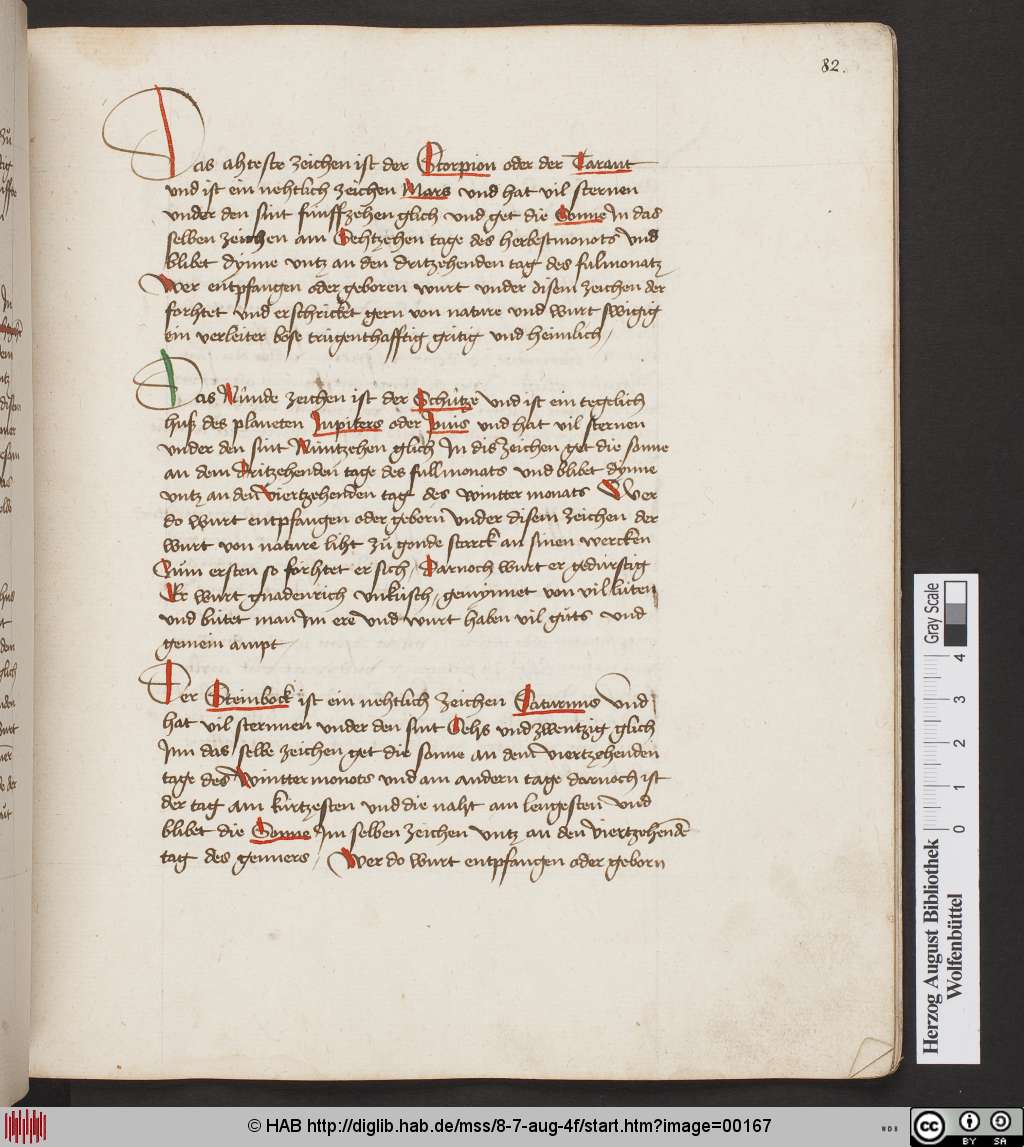 82.
Das ahteste zeichen ist der Scorpion oder der Tarant
und ist ein nehtlich zeichen Mars und hat vil sternen
under den sint funffzehen glich und get die Sonne In das
selben zeichen am Sehtzehen tage des herbestmonots Und
blibet dynne untz an den dritzehenden tag des fulmonatz
Wer entpfangen oder geboren wurt under disem zeichen der
forhtet und erschricket gern von nature und wurt swigig
ein verleiter böse trügenthafftig gritig und heimlich /
Das Nünde zeichen ist der Schütze und ist ein tegelich
huß des planeten Jupiters oder Jovis und hat vil sternen
under den sint Nüntzehen glich In dis zeichen get die sonne
an dem dritzehenden tage des fullmonats und blibet dynne
untz an den viertzehenden tag des wintter monats Wer
do wurt entpfangen oder geborn under disem zeichen der
wurt von nature liht zü gonde starck an sinen wercken
Züm ersten so forhtet er sich / Darnoch wurt er gedürstig
Er wurt gnadenrich unküsch / gemynnet von vil lüten
und bütet man Im ere und wurt haben vil güts und
gemein ampt
Der Steinbock ist ein nehtlich zeichen Saturnus und
hat vil sternnen under den sint Sehs und zwentzig glich
Inn das selbe zeichen get die sonne an dem viertzehenden
tage des Winttermonots und am andern tage darnoch ist
der tag am kürtzesten und die naht am lengesten und
blibet die Sonne Im selben zeichen untz an den viertzehende
tag des genners / Wer do wurt entpfangen oder geborn
Gray Scale
4
3
2
1
0
Herzog August Bibliothek
Wolfenbüttel
© HAB http://diglib.hab.de/mss/8-7-aug-4f/start.htm?image=00167
WDB
cc
BY SA